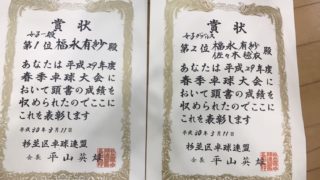 賞状
女子一般
第1位 福永有紗 殿
あなたは平成29年度
春季卓球大会に
おいて頭書の成績を
収められたのでここに
これを表彰します
平成30年3月11日
杉並区卓球連盟
会長 平山英雄
賞状
女子ダブルス
第2位 福永有紗
佐々木 殿
あなたは平成29年度
春季卓球大会に
おいて頭書の成績を
収められたのでここに
これを表彰します
平成30年3月11日
杉並区卓球連盟
会長 平山英雄